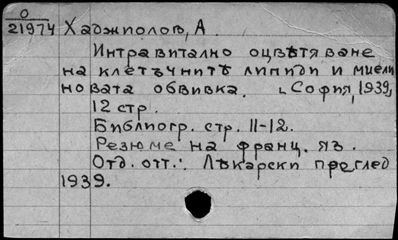 О
21974 Хаджиполов, А.
Интравитално оцвѣтяване
на клетъчнитѣ липиди и миели
новата обвивка. [София, 1939,
12 стр.
Библиогр. стр. 11-12.
Резюме на франц. яз.
Отд. отт.: Лѣкарски преглед
1939.